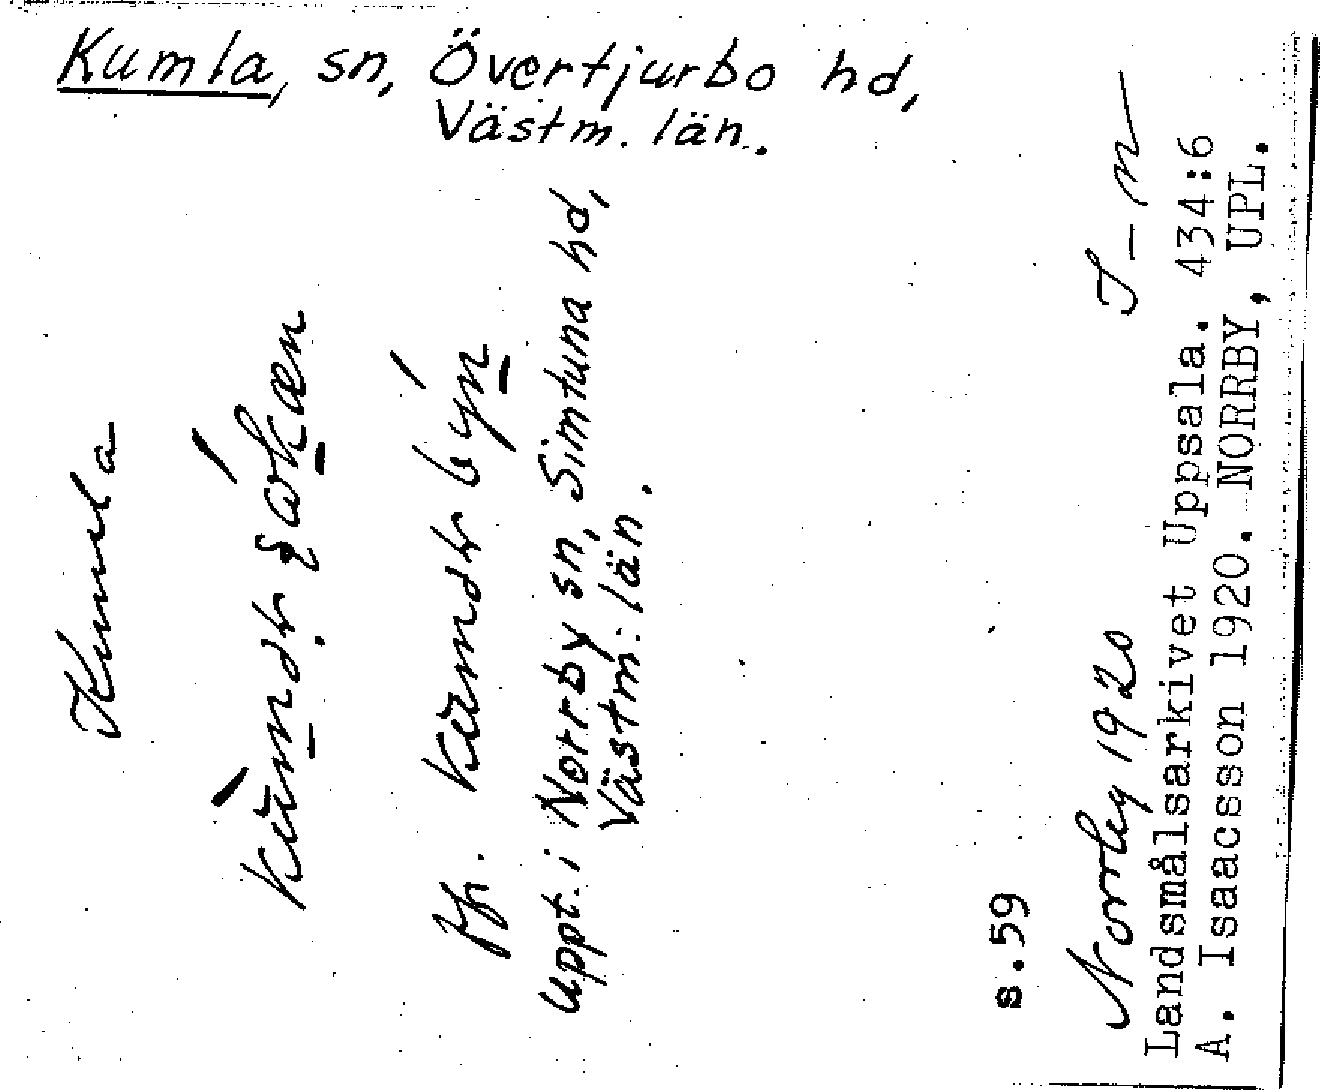 Kumla, sn, Övertjurbo hd,
Västm. län.
Kumla
uppt. i Norrby sn, Simtuna hd,
Västm. län.
s.59
Norrby 1920
Landsmålsarkivet Uppsala. 434:6
A. Isaacsson 1920. NORRBY, UPL.